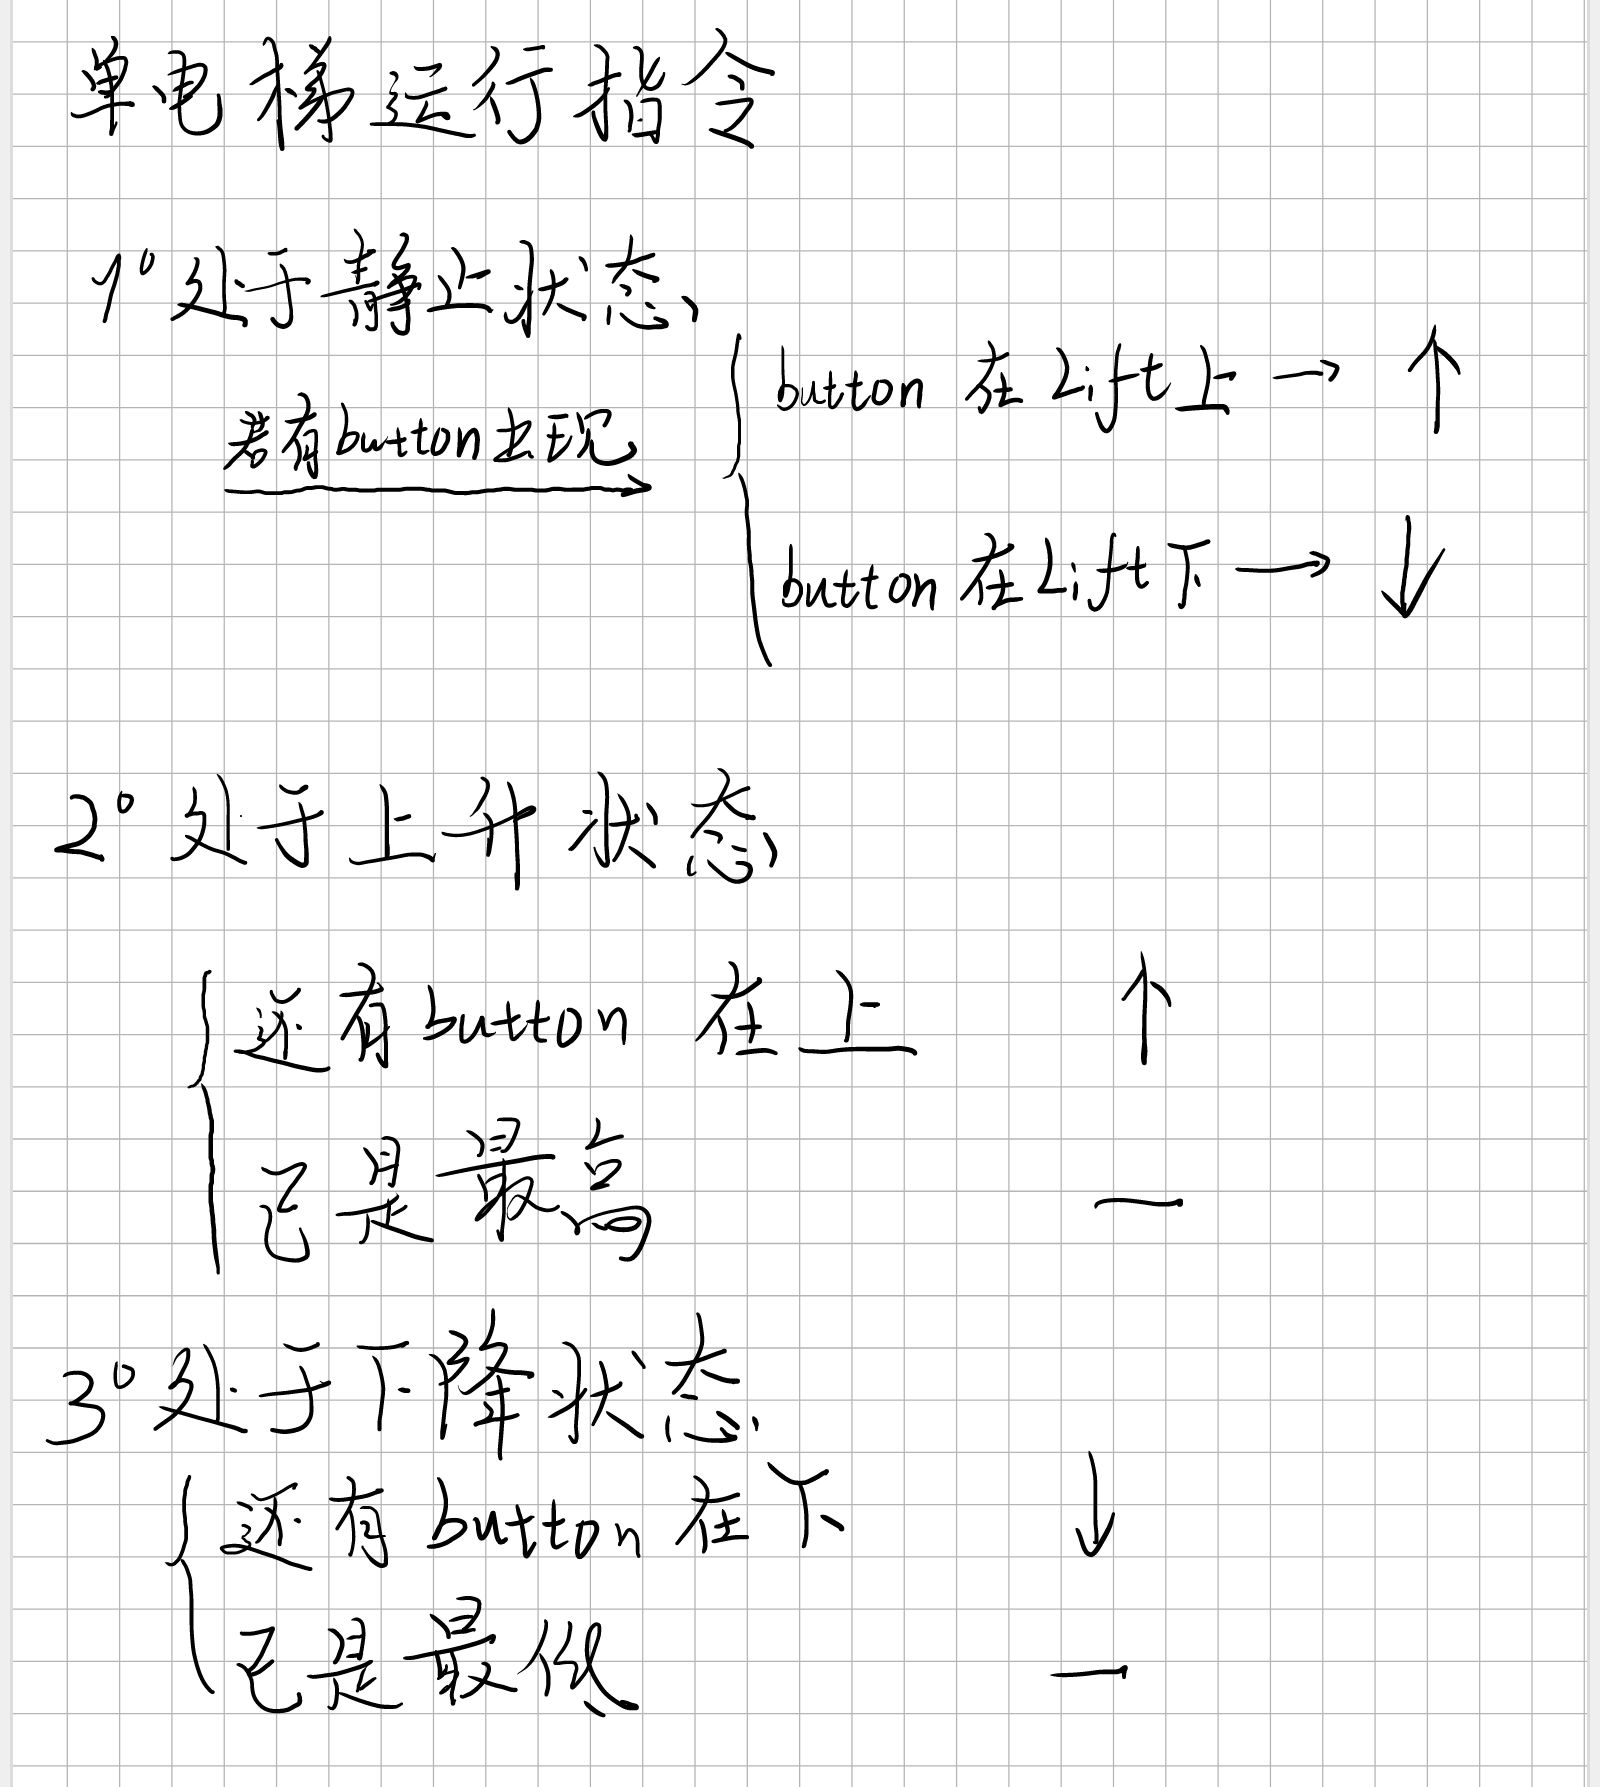 单电梯运行指令
1° 处于静止状态、
若有button出现
button 在Lift上 → ↑
button 在Lift下 → ↓
2° 处于上升状态、
还有button 在上 ↑
已是最高 —
3° 处于下降状态.
还有button在下 ↓
已是最低 —